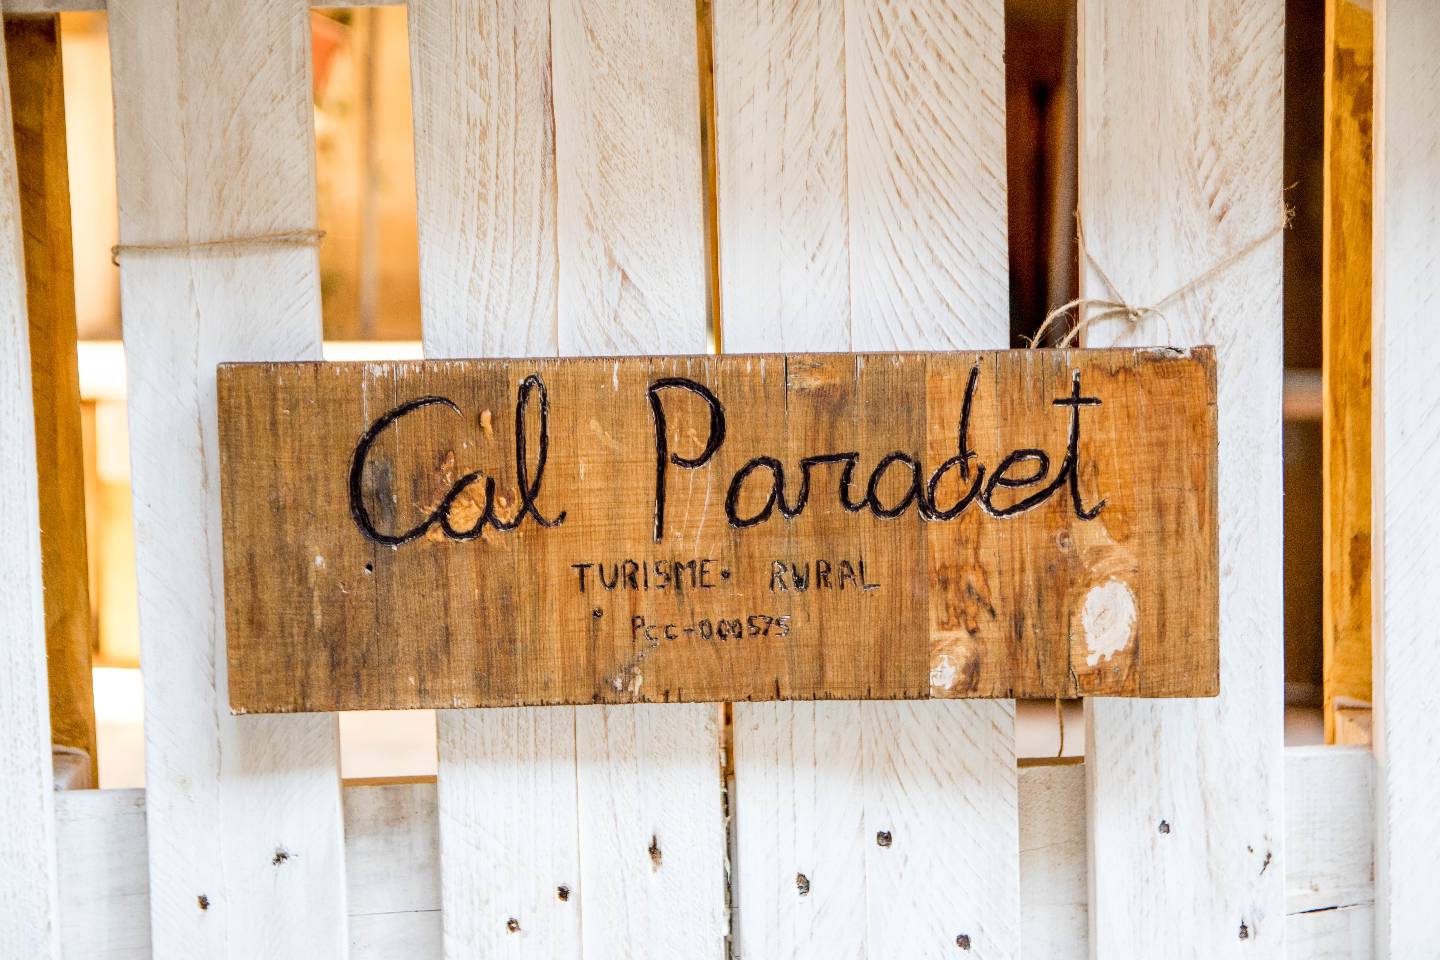 Cal Paradet
TURISME RURAL
PCC-000575